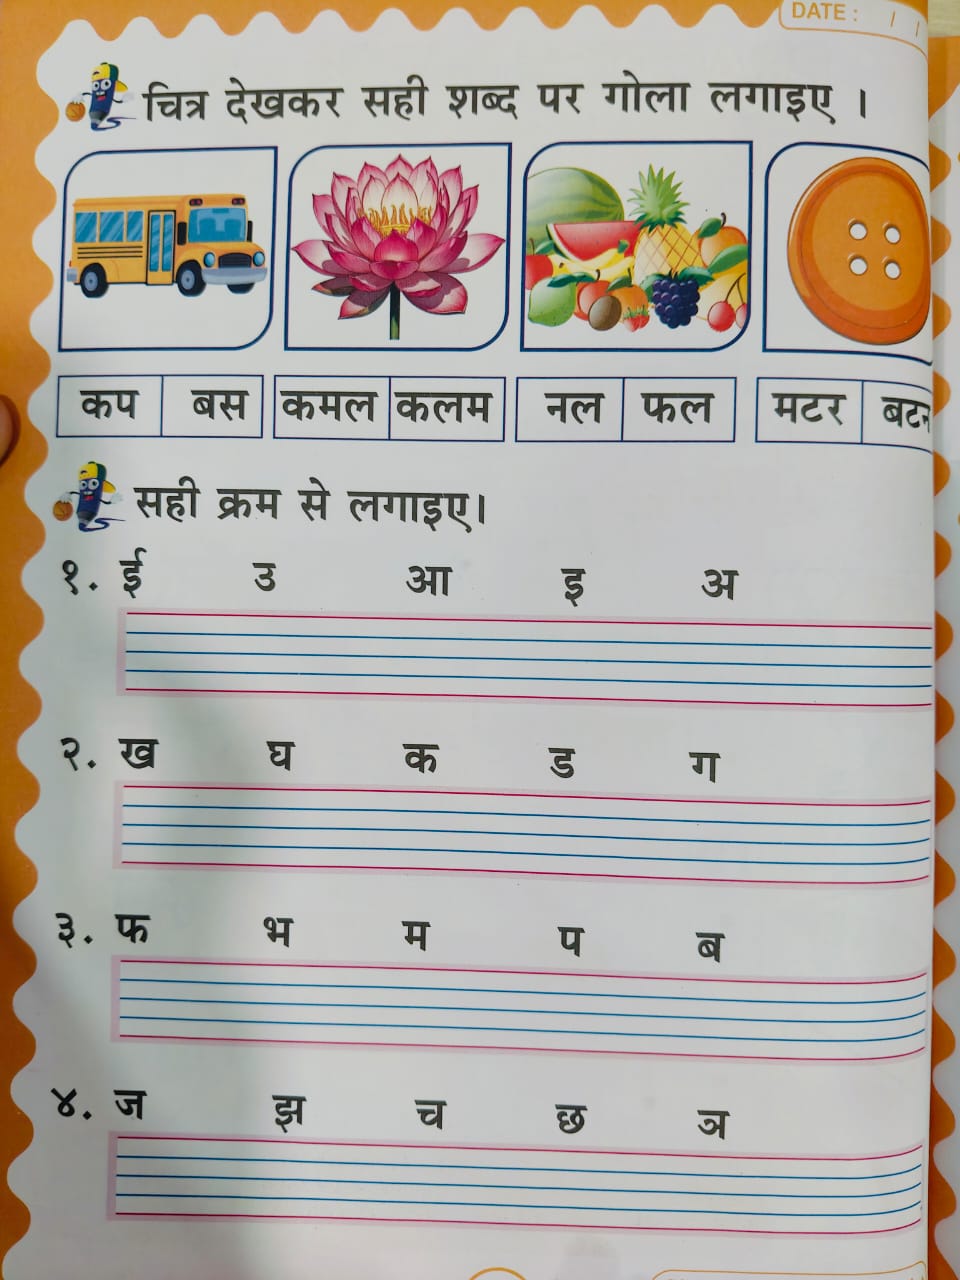 DATE : / /
चित्र देखकर सही शब्द पर गोला लगाइए ।
कप बस कमल कलम नल फल मटर बटन
सही क्रम से लगाइए।
१. ई उ आ इ अ
२. ख घ क ड ग
३. फ भ म प ब
४. ज झ च छ ञ